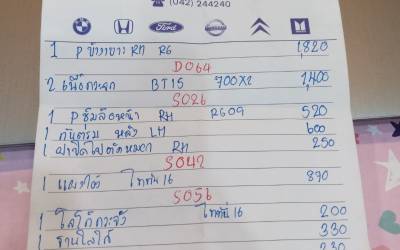 ☎ (042) 244240
Ford
NISSAN
ISUZU
1 P ข้างขวา RH R6 1,820
D064
2 BT15 700x2 1,400
S026
1 P ซุ้มล้อหน้า RH R609 520
1 กันชน หลัง LH 600
1 ฝาปิดไฟตัดหมอก RH 250
S042
1 ไททัน 16 870
S056
1 โลโก้กระจัง ไททัน 16 200
1 ฐานโลโก้ 330